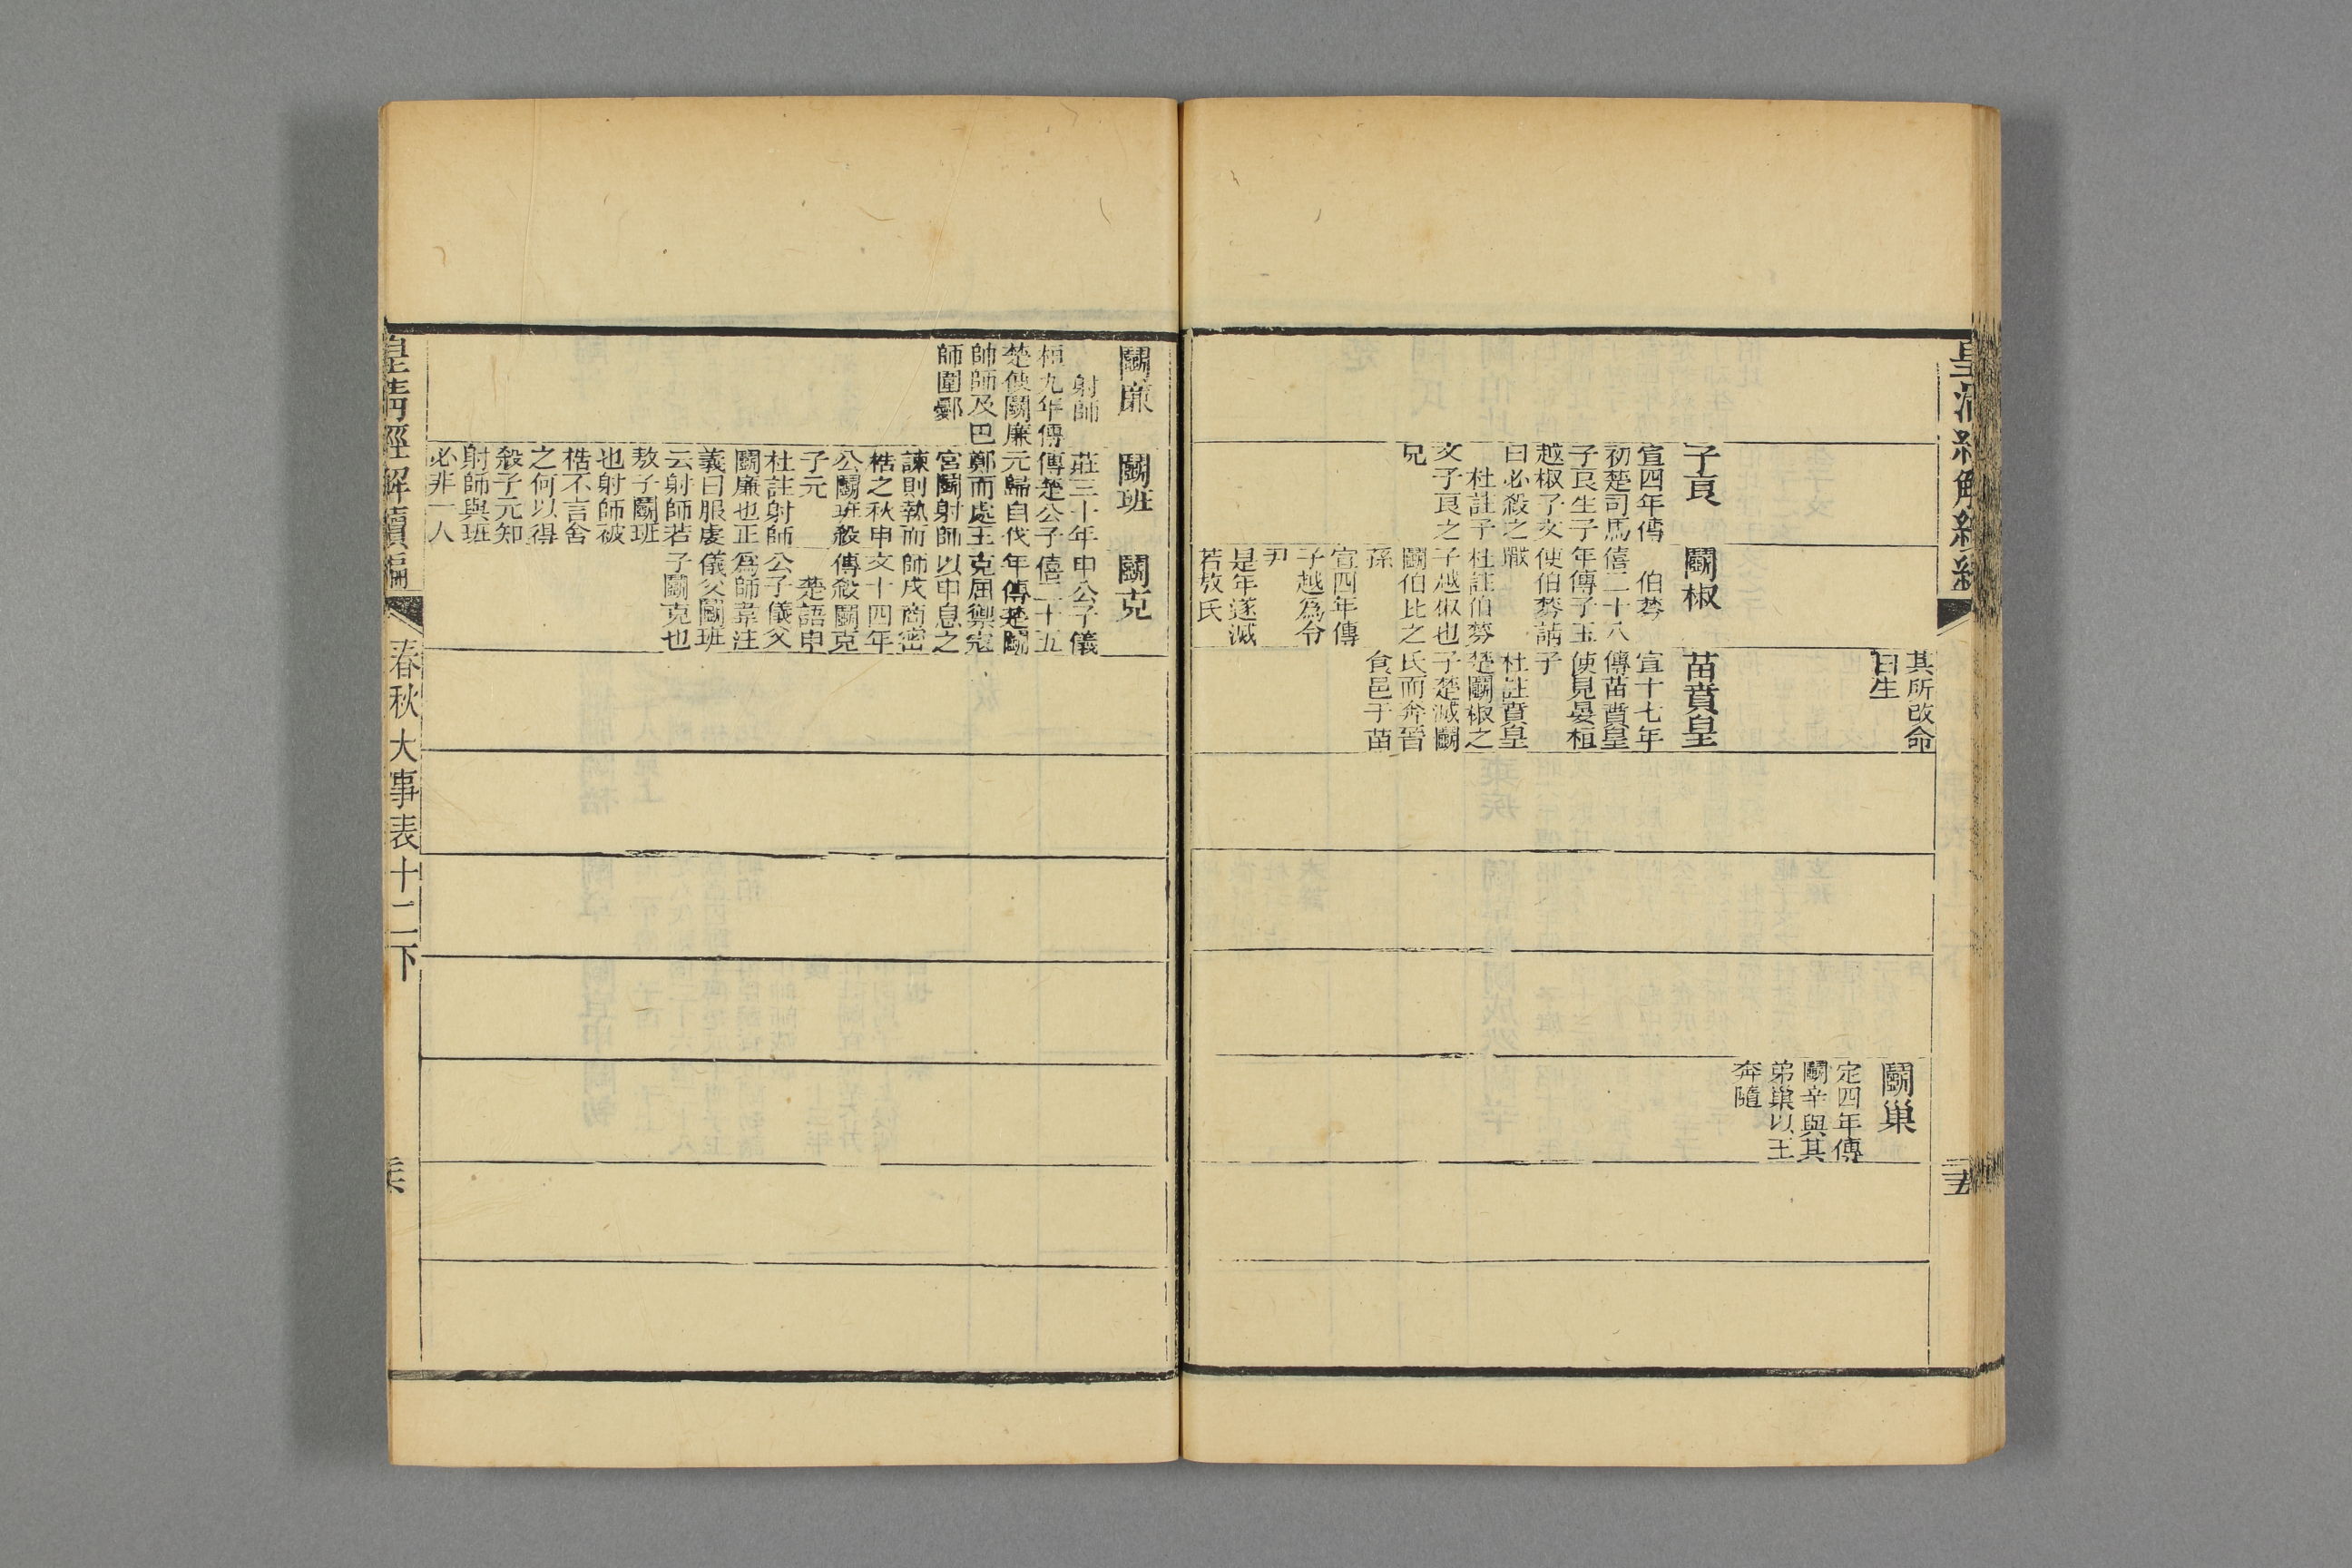 皇清經解續編
其所改命
曰生
鬬巢
定四年傳
鬬辛與其
弟巢以王
奔隨
子良
宣四年傳
初楚司馬
子良生子
越椒子文
曰必殺之
杜註子
文子良之
兄
鬬椒
伯棼
僖二十八
年傳子玉
使伯棼請
戰
杜註伯棼
子越椒也
鬬伯比之
孫
宣四年傳
子越爲令
尹
是年遂滅
若敖氏
苗賁皇
宣十七年
傳苗賁皇
使見晏桓
子
杜註賁皇
楚鬬椒之
子楚滅鬬
氏而奔晉
食邑于苗
鬬廉
射師
桓九年傳
楚使鬬廉
帥師及巴
師圍鄾
鬬班
莊三十年
傳楚公子
元歸自伐
鄭而處王
宮鬬射師
諫則執而
梏之秋申
公鬬班殺
子元
杜註射師
鬬廉也正
義曰服虔
云射師若
敖子鬬班
也射師被
梏不言舍
之何以得
殺子元知
射師與班
必非一人
鬬克
申公子儀
僖二十五
年傳楚鬬
克屈禦寇
以申息之
師戍商密
文十四年
傳殺鬬克
楚語申
公子儀父
爲師韋注
儀父鬬班
子鬬克也
皇清經解續編
春秋大事表十二下